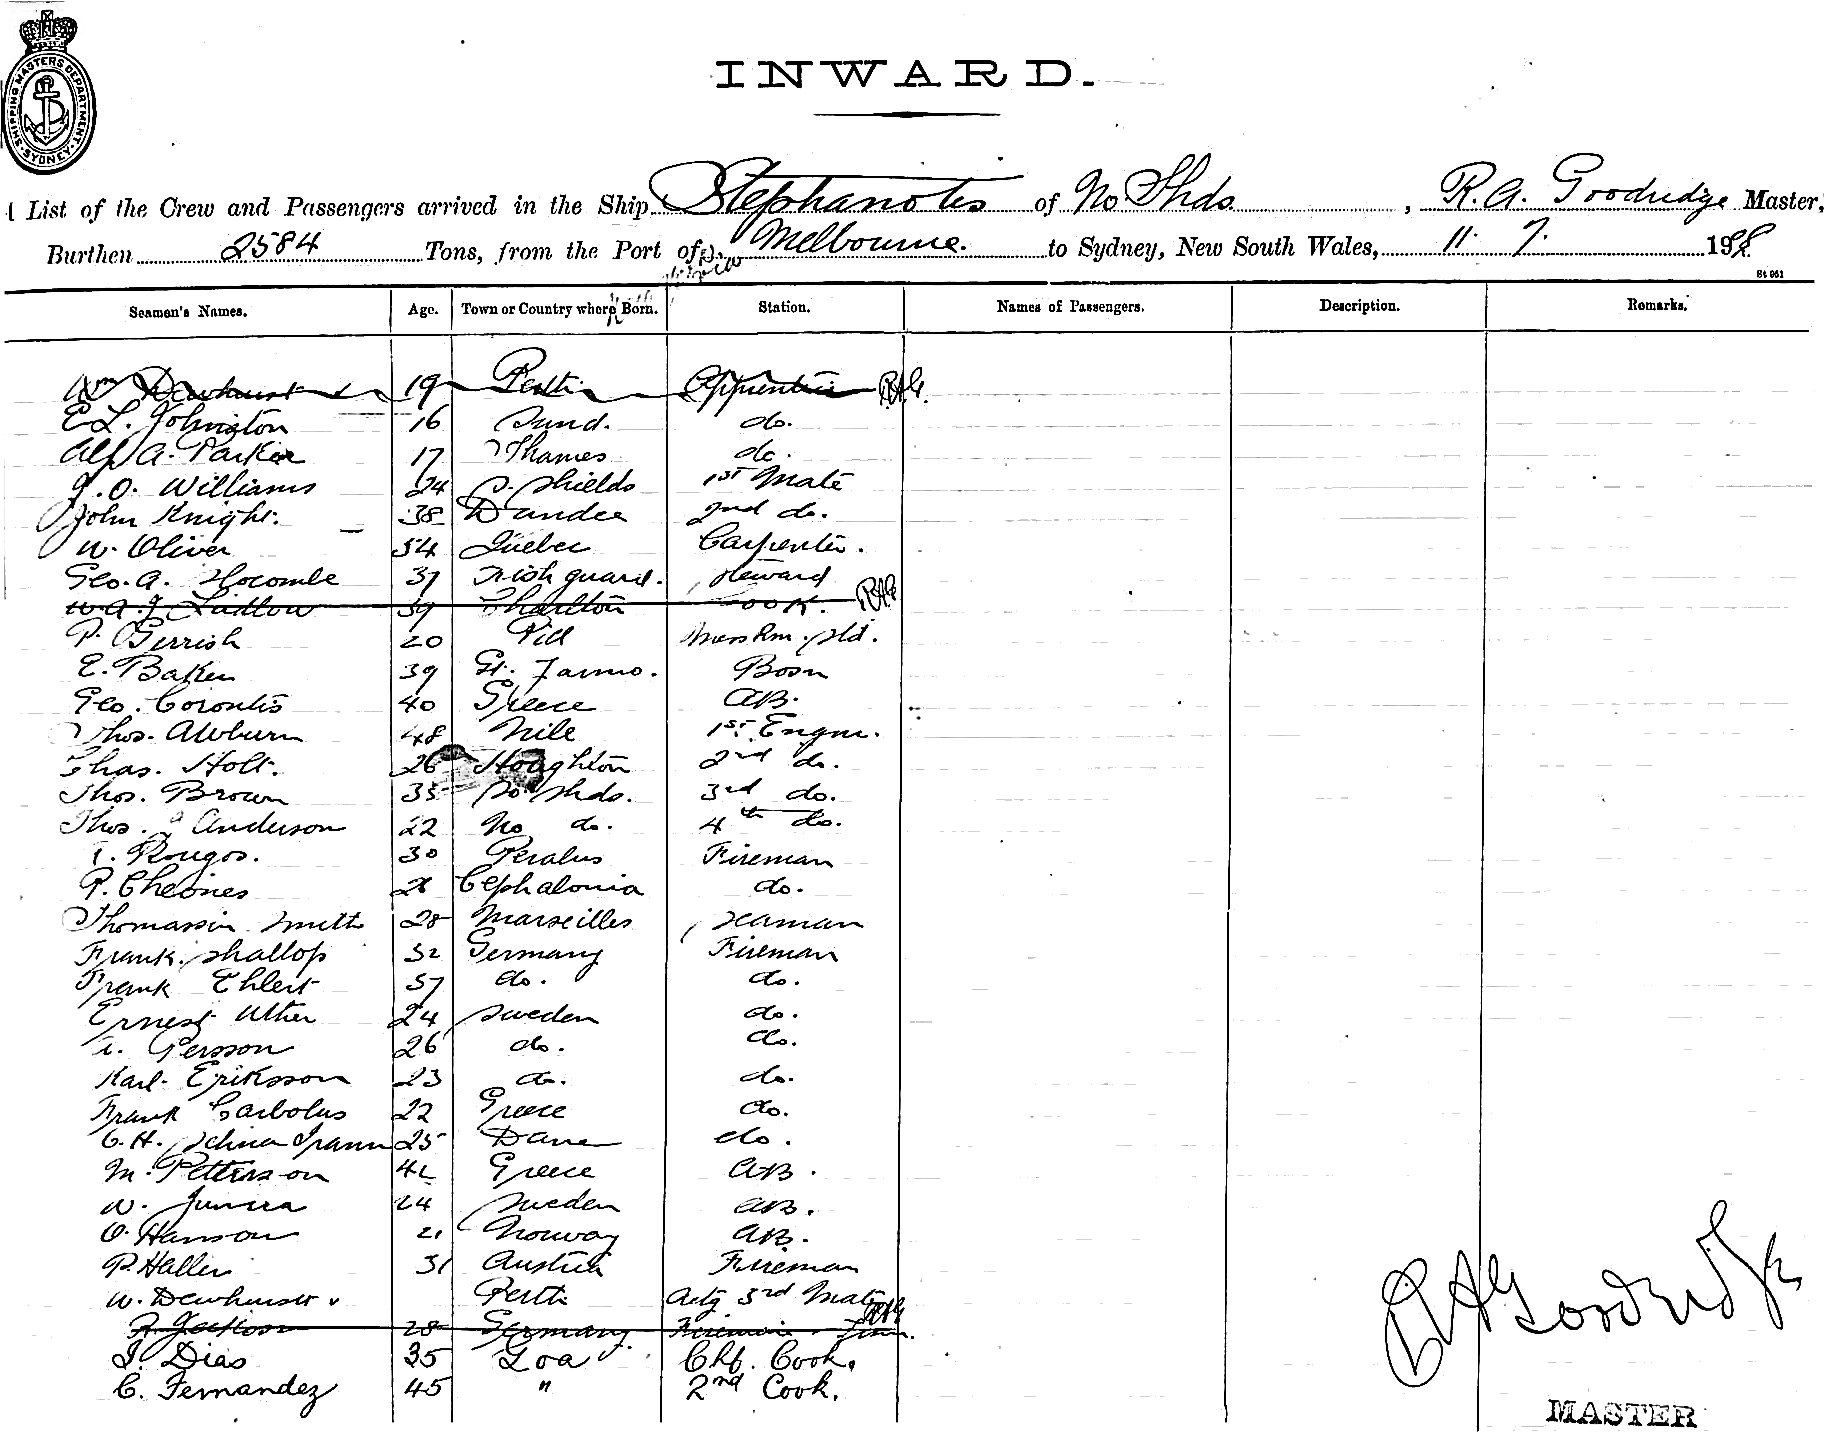 SHIPPING MASTERS DEPARTMENT SYDNEY
INWARD.
List of the Crew and Passengers arrived in the Ship Stephanotis of No Shds, R. A. Goodridge Master,
Burthen 2584 Tons, from the Port of Melbourne. to Sydney, New South Wales, 11. 7. 198
St 051
Seamen's Names. Age. Town or Country where Born. Station. Names of Passengers. Description. Remarks.
Wm Dewhurst 19 Perth Apprentice RAG.
E L. Johnington 16 Sund. do.
Alf A. Parker 17 Thames do.
J. O. Williams 24 S. Shields 1st Mate
John Knight. 38 Dundee 2nd do.
W. Oliver 54 Quebec Carpenter.
Geo. A. Hocombe 37 Steward
W A J Ludlow 39 Charlton Cook. RAG
P. Gerrish 20 Pill Mess Rm. Std.
E. Baker 39 Bosn
Geo. Corontis 40 Greece AB.
Thos. 48 Nile 1st Engnr.
Chas. Holt. 26 Houghton 2nd do.
Thos. Brown 35 So Shds. 3rd do.
Thos. Anderson 22 No do. 4th do.
30 Fireman
P. Cheones Cephalonia do.
Thomassin Smith 28 Marseilles Seaman
Frank Shallop 32 Germany Fireman
Frank Ehlert 37 do. do.
Ernest Uther 24 Sweden do.
Persson 26 do. do.
Karl Eriksson 23 do. do.
Frank Carbolus 22 Greece do.
C. H. 25 Dane do.
M. Petterson Greece AB.
W. 24 Sweden AB.
O. Hanson 21 Norway AB.
P. Haller 31 Austria Fireman
W. Dewhurst Perth Actg 3rd Mate RAG
Jackson 28 Germany Fireman
Dias 35 Goa Chf. Cook.
C. Fernandez 45 " 2nd Cook.
R A Goodridge
MASTER